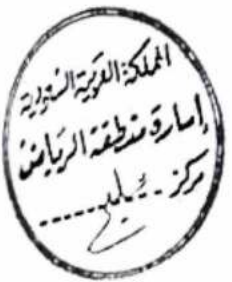 المملكة العربية السعودية
إمارة منطقة الرياض
مركز